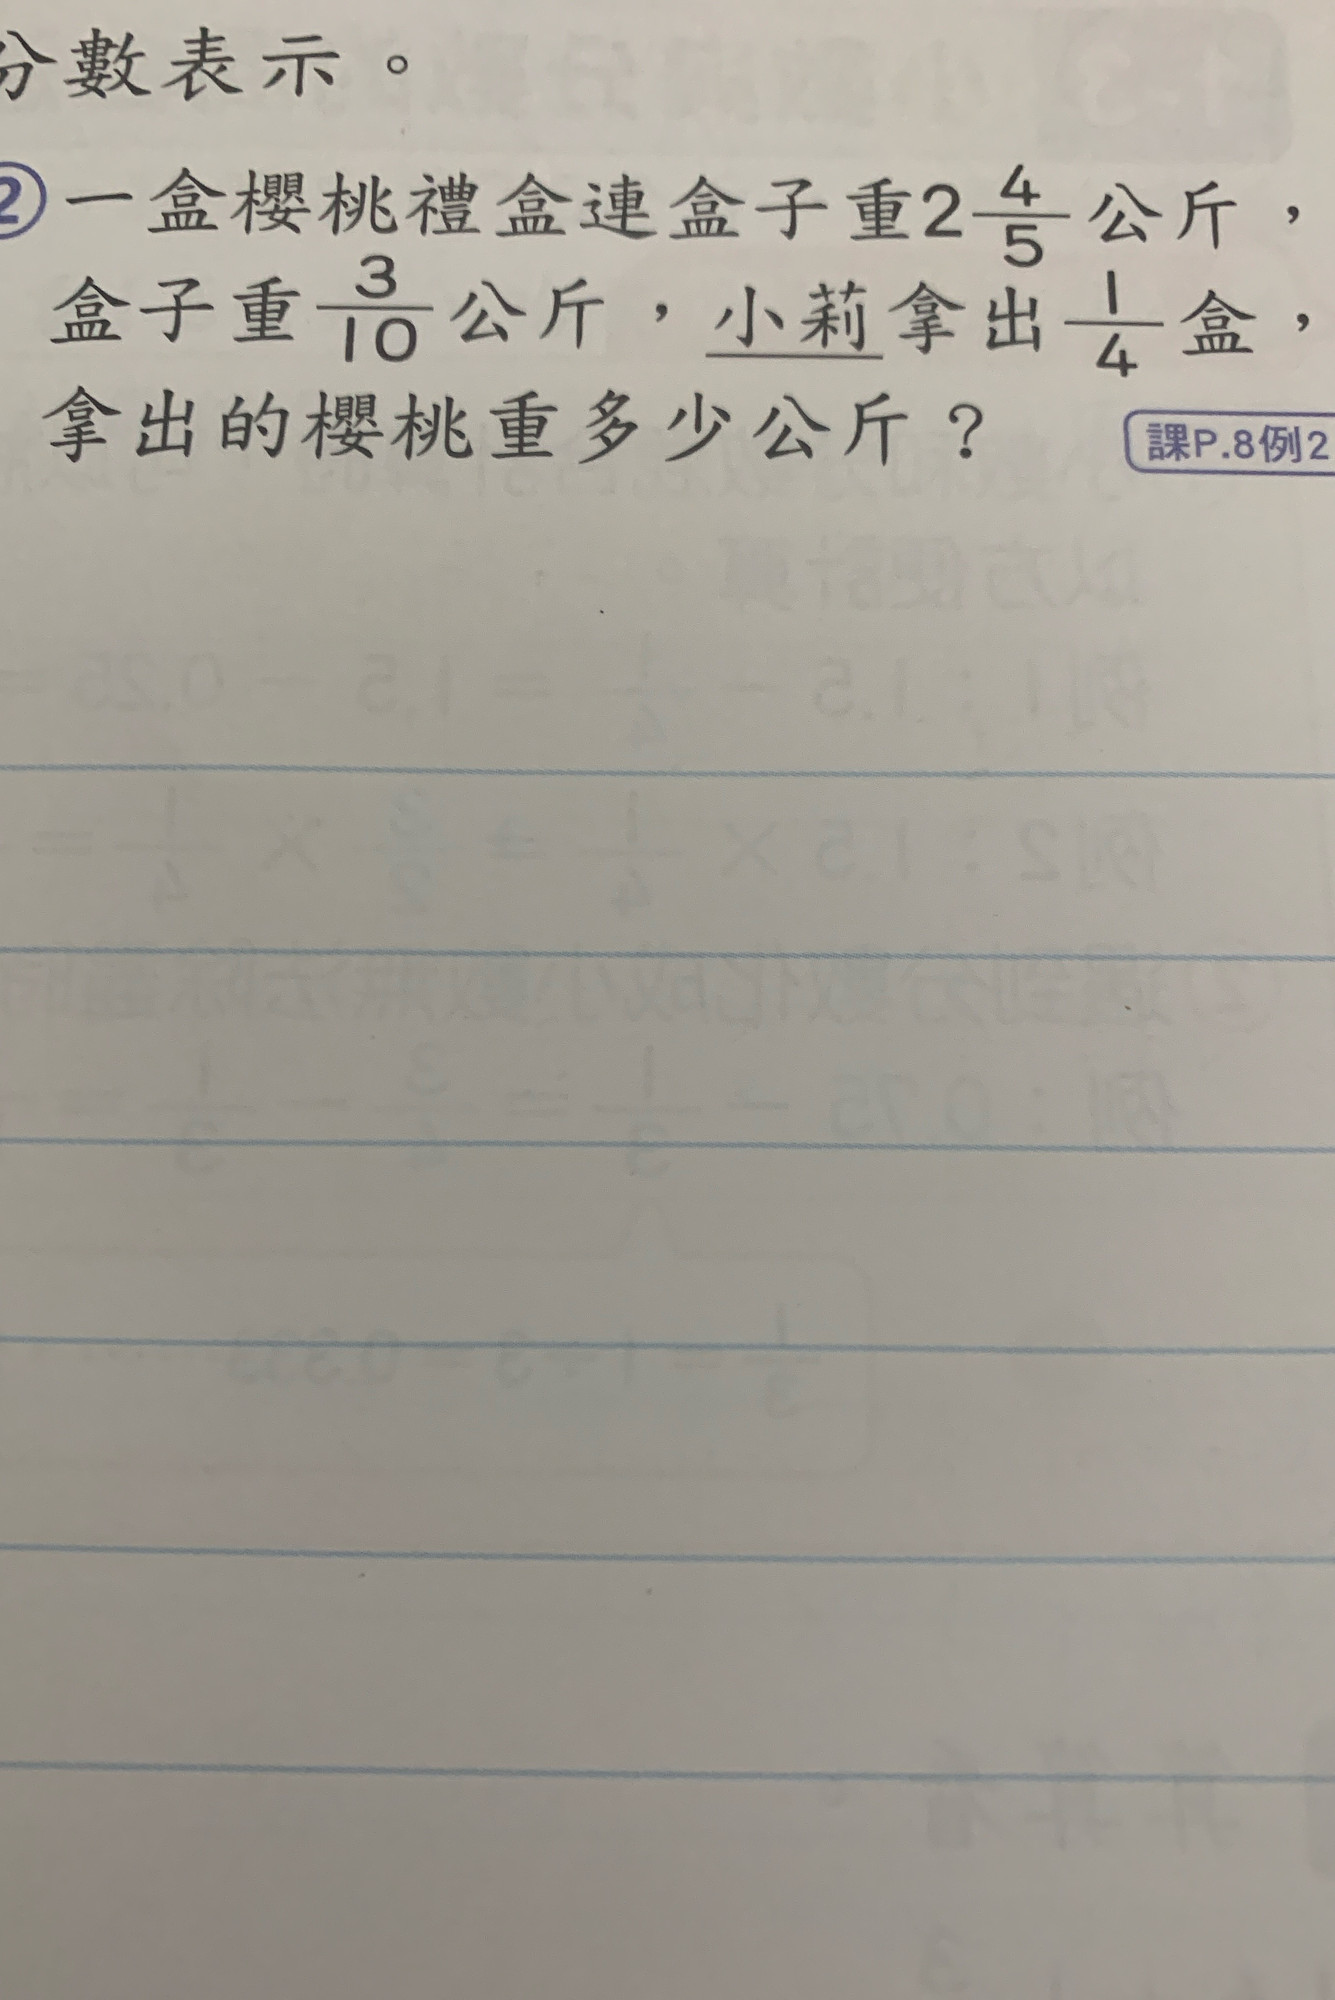 分數表示。
②一盒櫻桃禮盒連盒子重2 4/5 公斤，
盒子重 3/10 公斤，小莉拿出 1/4 盒，
拿出的櫻桃重多少公斤？
課P.8例2